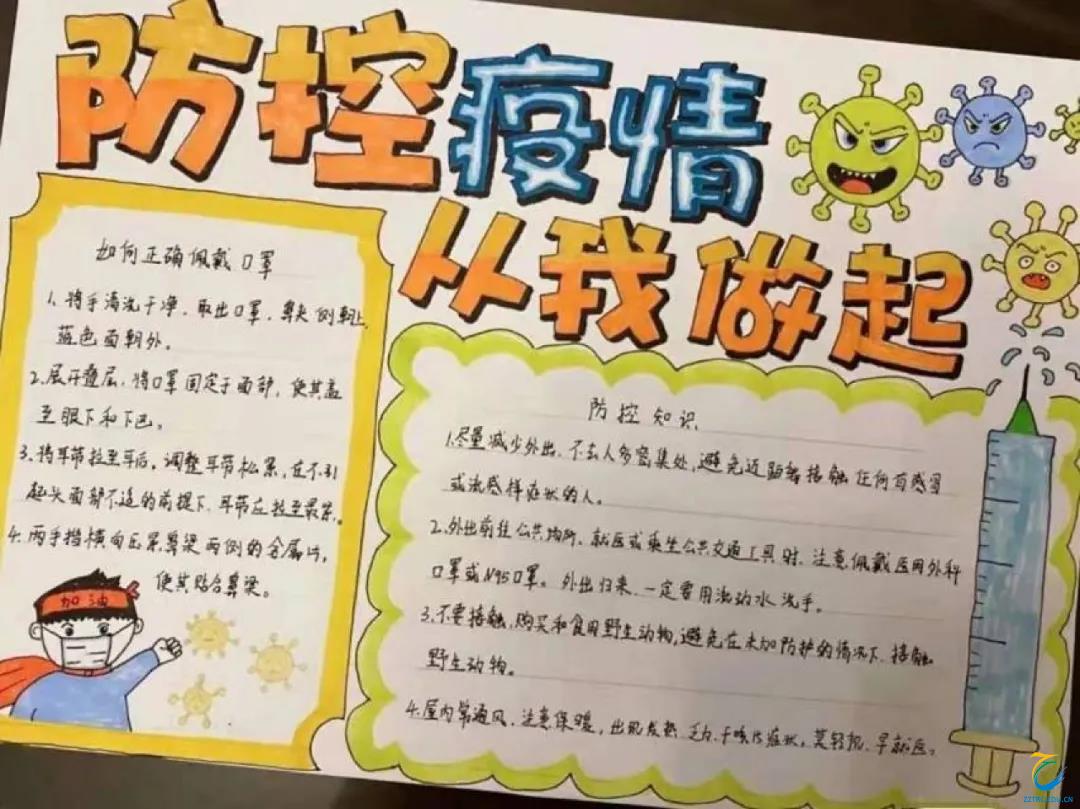 防控疫情
从我做起
如何正确佩戴口罩
1、将手清洗干净，取出口罩，鼻夹侧朝上，
蓝色面朝外。
2、展开叠层，将口罩固定于面部，使其盖
至眼下和下巴。
3、将耳带拉至耳后，调整耳带松紧，在不引
起头面部不适的前提下，耳带应拉至最紧。
4、两手指横向压紧鼻梁两侧的金属片，
使其贴合鼻梁。
加油
防控知识
1、尽量减少外出，不去人多密集处，避免近距离接触任何有感冒
或流感样症状的人。
2、外出前往公共场所、就医或乘坐公共交通工具时，注意佩戴医用外科
口罩或N95口罩。外出归来，一定要用流动水洗手。
3、不要接触、购买和食用野生动物，避免在未加防护的情况下，接触
野生动物。
4、屋内常通风，注意保暖，出现发热、乏力、干咳等症状，莫轻视，早就医。
ZZTRC.EDU.CN